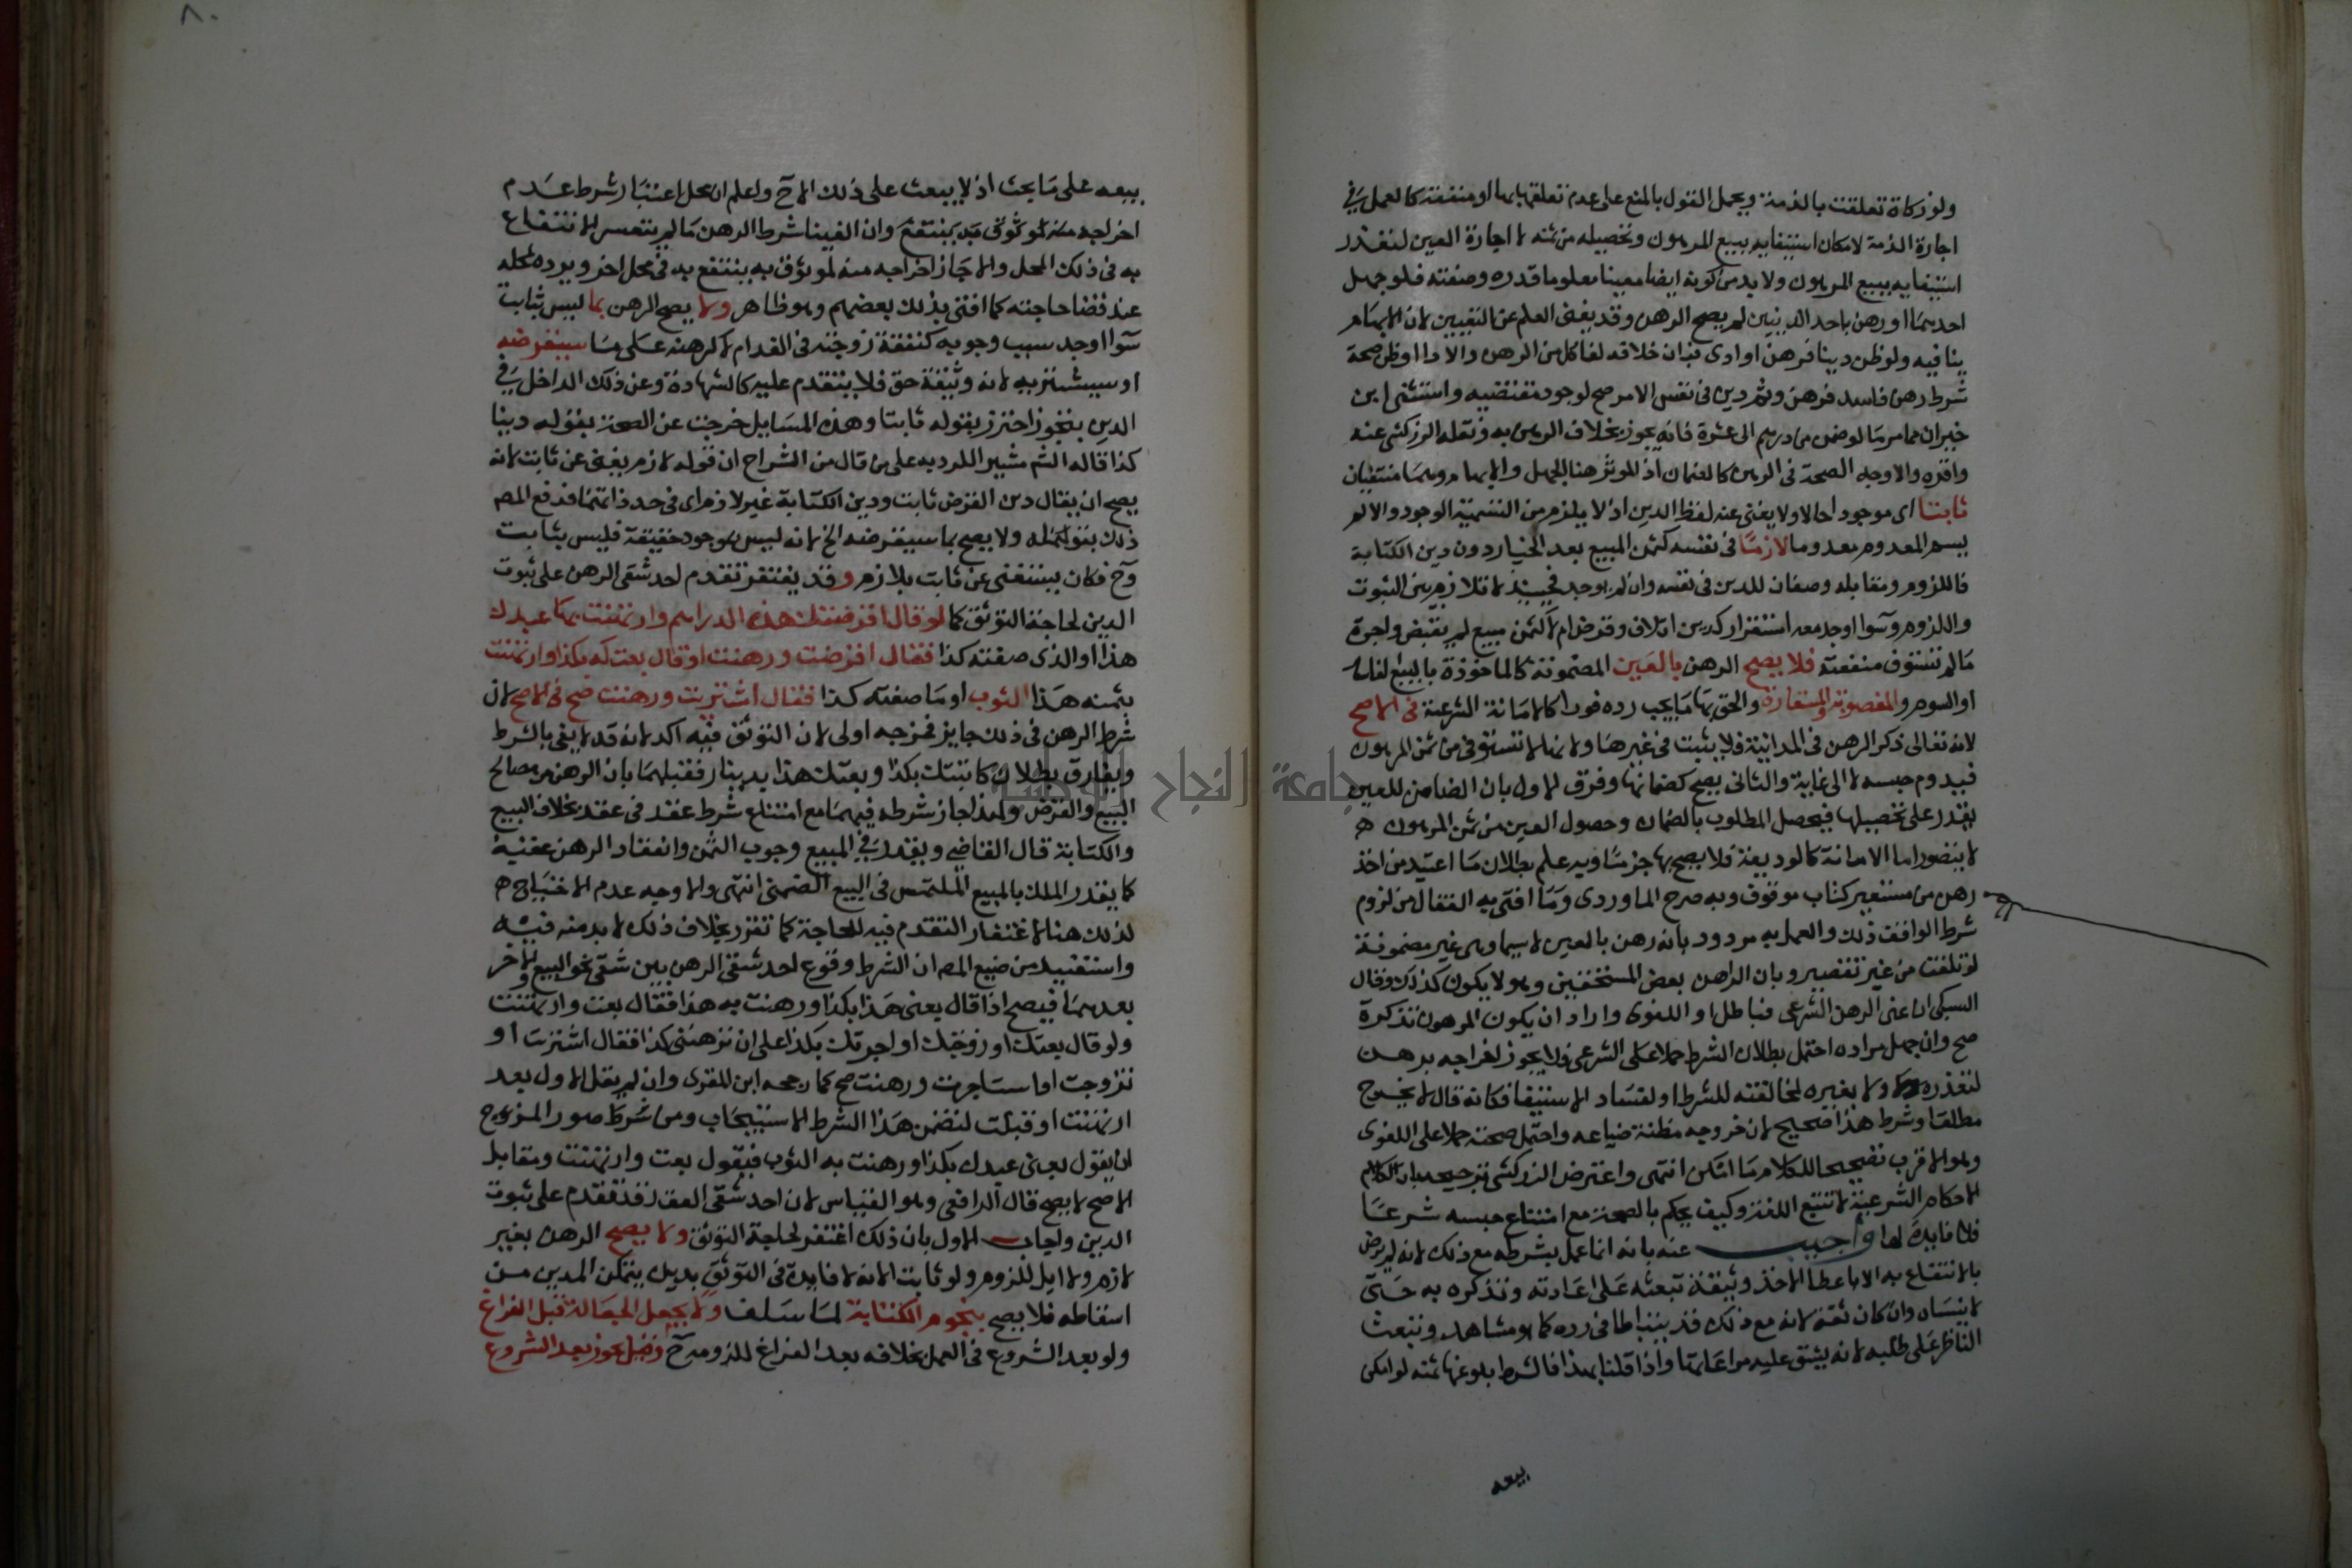 ولو زكاة تعلقت بالذمة ويحمل القول بالمنع على عدم تعلقها بها او منفعة كالعمل في
اجارة الذمة لامكان استيفايه ببيع المرهون وتحصيله من ثمنه لا اجارة العين لتعذر
استيفايه ببيع المرهون ولا بد من كونه ايضا معينا معلوما قدره وصفته فلو جهل
احدهما او رهن باحد الدينين لم يصح الرهن وقد يغني العلم عن التعيين لان الابهام
ينافيه ولو ظن دينا فرهن او ادى فبان خلافه لغا كل من الرهن والادا او ظن صحة
شرط رهن فاسد فرهن وثم دين في نفس الامر صح لوجود مقتضيه واستثنى ابن
خيران مما مر ما لو ضمن من درهم الى عشرة فانه يجوز بخلاف الرهن به ونقله الزركشي عنه
واقره والاوجه الصحة في الرهن كالضمان اذ الموثر هنا الجهل والابهام وهما منتفيان
ثابتا اى موجودا حالا ولا يغني عنه لفظ الدين اذ لا يلزم من التسمية الوجود والا لم
يسم المعدوم معدوما لازما في نفسه كثمن المبيع بعد الخيار دون دين الكتابة
فاللزوم ومقابله وصفان للدين في نفسه وان لم يوجد فحينئذ لا تلازم بين الثبوت
واللزوم وسوا اوجد معه استقرار كدين اتلاف وقرض ام لا كثمن مبيع لم يقبض واجرة
ما لم تستوف منفعته فلا يصح الرهن بالعين المضمونة كالماخوذة بالبيع الفاسد
او السوم والمغصوبة والمستعارة والحق بها ما يجب رده فورا كالامانة الشرعية في الاصح
لانه تعالى ذكر الرهن في المداينة فلا يثبت في غيرها ولانها لا تستوفى من ثمن المرهون
فيدوم حبسه لا الى غاية والثاني يصح كضمانها وفرق الاول بان الضامن للعين
يقدر على تحصيلها فيحصل المطلوب بالضمان وحصول العين من ثمن المرهون
لا يتصور اما الامانة كالوديعة فلا يصح بها جزما وبه علم بطلان ما اعتيد من اخذ
رهن من مستعير كتاب موقوف وبه صرح الماوردي وما افتى به القفال من لزوم
شرط الواقف ذلك والعمل به مردود بانه رهن بالعين لا سيما وهى غير مضمونة
لو تلفت من غير تقصير وبان الراهن بعض المستحقين وهو لا يكون كذلك وقال
السبكي ان عنى الرهن الشرعي فباطل او اللغوى واراد ان يكون المرهون تذكرة
صح وان جهل مراده احتمل بطلان الشرط حملا على الشرعي فلا يجوز اخراجه برهن
لتعذره ولا بغيره لمخالفته للشرط او لفساد الاستثنا فكانه قال لا يخرج
مطلقا وشرط هذا صحيح لان خروجه مظنة ضياعه واحتمل صحته حملا على اللغوى
وهو الاقرب تصحيحا للكلام ما امكن انتهى واعترض الزركشي ترجيحه بان
الاحكام الشرعية لا تتبع اللغة وكيف يحكم بالصحة مع امتناع حبسه شرعا
فلا فايدة لها واجيب عنه بانه انما عمل بشرطه مع ذلك لانه لم يرض
بالانتفاع به الا باعطا الاخذ وثيقة تبعثه على اعادته وتذكره به حتى
لا ينساه وان كان ثقة لانه مع ذلك قد يتباطا في رده كما هو مشاهد وتبعث
الناظر على طلبه لانه يشق عليه مراعاتها واذا قلنا بهذا فالشرط بلوغها ثمنه لو امكن
بيعه
٨٠
بيعه على ما بحث اذ لا يبعث على ذلك الاح واعلم ان محل اعتبار شرط عدم
اخراجه وان الغينا شرط الرهن ما لم يتعسر الانتفاع
به في ذلك المحل والا جاز اخراجه منه لموثوق به ينتفع به في محل اخر ويرده لمحله
عند قضا حاجته كما افتى بذلك بعضهم وهو ظاهر ولا يصح الرهن بما ليس بثابت
سوا اوجد سبب وجوبه كنفقة زوجته في الغد ام لا كرهنه على ما سيقرضه
او سيشتريه لانه وثيقة حق فلا يتقدم عليه كالشهادة وعن ذلك الداخل في
الدين بتجوز احترز بقوله ثابتا وهذه المسايل خرجت عن الصحة بقوله دينا
كذا قاله الشم مشيرا للرد به على من قال من الشراح ان قوله لازم يغني عن ثابت لانه
يصح ان يقال دين القرض ثابت ودين الكتابة غير لازم اى في حد ذاتهما فدفع المصم
ذلك بقوله ولا يصح بما سيقرضه الخ لانه ليس بموجود حقيقة فليس بثابت
وح فكان يستغنى عن ثابت بلازم وقد يغتفر تقدم احد شقى الرهن على ثبوت
الدين لحاجة التوثق كما لو قال اقرضتك هذه الدراهم وارتهنت بها عبدك
هذا او الذى صفته كذا فقال اقرضت ورهنت او قال بعتكه بكذا وارتهنت
بثمنه هذا الثوب او ما صفته كذا فقال اشتريت ورهنت صح في الاصح لان
شرط الرهن في ذلك جايز فمزجه اولى لان التوثق فيه اكد لانه قد لا يفي بالشرط
ويفارق بطلان كاتبتك بكذا وبعتك هذا بدينار فقبلهما بان الرهن من مصالح
البيع والقرض ولهذا جاز شرطه فيهما مع امتناع شرط عقد في عقد بخلاف البيع
والكتابة قال القاضي ويقدر في البيع وجوب الثمن وانعقاد الرهن عقبه
كما يقدر الملك بالمبيع الملتمس في البيع الضمني انتهى والاوجه عدم الاحتياج
لذلك هنا لاغتفار التقدم فيه للحاجة كما تقرر بخلاف ذلك لا بد منه فيه
واستفيد من صنيع المصم ان الشرط وقوع احد شقى الرهن بين شقى نحو البيع والاخر
بعدهما فيصح اذا قال بعني هذا بكذا ورهنت به هذا فقال بعت وارتهنت
ولو قال بعتك او زوجتك او اجرتك بكذا على ان ترهنني كذا فقال اشتريت او
تزوجت او استاجرت ورهنت صح كما رجحه ابن المقرى وان لم يقل الاول بعد
ارتهنت او قبلت لتضمن هذا الشرط الاستيجاب ومن شركا صور المزج
ان يقول بعني عبدك بكذا ورهنت به الثوب فيقول بعت وارتهنت ومقابل
الاصح لا يصح قال الرافعي وهو القياس لان احد شقى العقد قد تقدم على ثبوت
الدين واجاب الاول بان ذلك اغتفر لحاجة التوثق ولا يصح الرهن بغير
لازم ولا ايل للزوم ولو ثابتا لانه لا فايدة في التوثق بدين يتمكن المدين من
اسقاطه فلا يصح بنجوم الكتابة لما سلف ولا بجعل الجعالة قبل الفراغ
ولو بعد الشروع في العمل بخلافه بعد الفراغ للزومه ح وقيل يجوز بعد الشروع
جامعة النجاح الوطنية